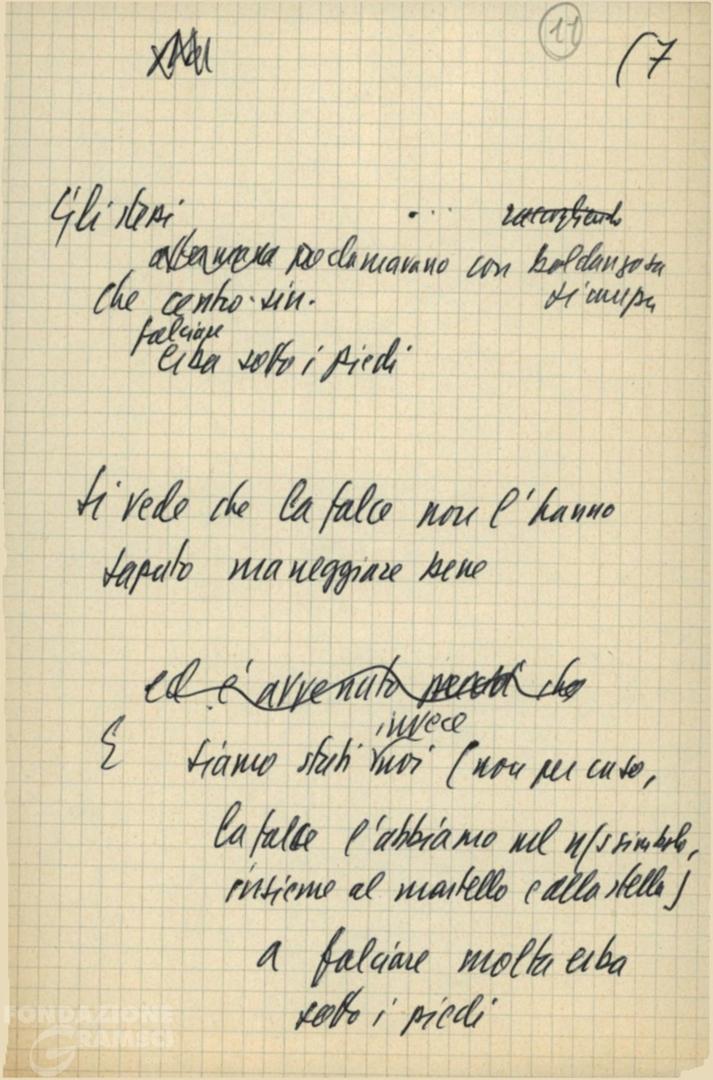 11
(7
Gli stessi ...
proclamavano con baldanzosa
che centro-sin. sicurezza
falciare
erba sotto i piedi
Si vede che la falce non l'hanno
saputo maneggiare bene
ed è avvenuto che
invece
E siamo stati noi (non per caso,
la falce l'abbiamo nel n/s simbolo,
insieme al martello e alla stella)
a falciare molta erba
sotto i piedi
FONDAZIONE
GRAMSCI